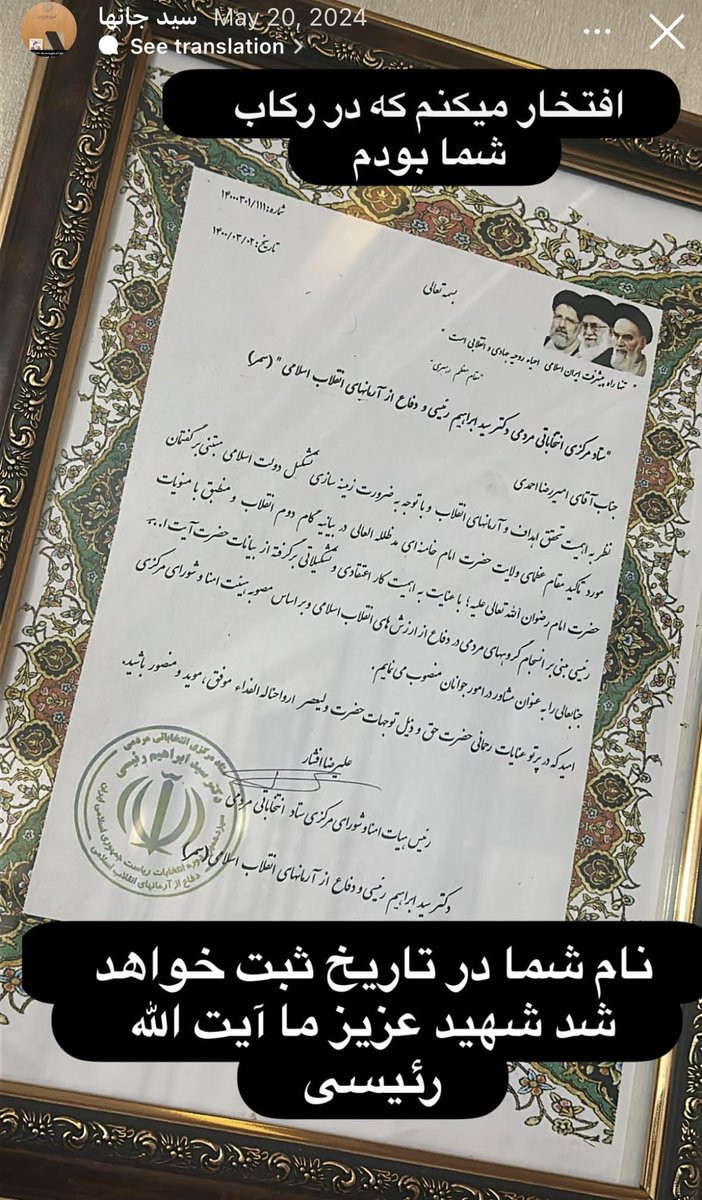 سید جانها May 20, 2024
See translation
افتخار میکنم که در رکاب
شما بودم
شماره: ۱۴۰۰۰۳۰۱/۱۱۱
تاریخ: ۱۴۰۰/۰۳/۰۲
بسمه تعالی
" تنها راه پیشرفت ایران اسلامی احیاء روحیه جهادی و انقلابی است "
"مقام معظم رهبری"
"ستاد مرکزی انتخاباتی مردمی دکتر سید ابراهیم رئیسی و دفاع از آرمانهای انقلاب اسلامی" (سمر)
جناب آقای امیررضا احمدی
نظر به اهمیت تحقق اهداف و آرمانهای انقلاب و با توجه به ضرورت زمینه سازی تشکیل دولت اسلامی مبتنی بر گفتمان
مورد تأکید مقام عظمای ولایت حضرت امام خامنه ای مدظله العالی در بیانیه گام دوم انقلاب و منطبق با منویات
حضرت امام رضوان الله تعالی علیه؛ با عنایت به اهمیت کار اعتقادی و تشکیلاتی برگرفته از بیانات حضرت آیت ا...
رئیسی مبنی بر انجام گروههای مردمی در دفاع از ارزش های انقلاب اسلامی و بر اساس مصوبه هیئت امنا و شورای مرکزی
جنابعالی را به عنوان مشاور در امور جوانان منصوب می نمایم.
امید که در پرتو عنایات رحمانی حضرت حق و ذیل توجهات حضرت ولیعصر ارواحناله الفداء موفق، موید و منصور باشید.
علیرضا افشار
رئیس هیات امنا و شورای مرکزی ستاد انتخاباتی مردمی
دکتر سید ابراهیم رئیسی و دفاع از آرمانهای انقلاب اسلامی (سمر)
ستاد مرکزی انتخاباتی مردمی
دکتر سید ابراهیم رئیسی
دوره انتخابات ریاست جمهوری اسلامی ایران
دفاع از آرمانهای انقلاب اسلامی
نام شما در تاریخ ثبت خواهد
شد شهید عزیز ما آیت الله
رئیسی